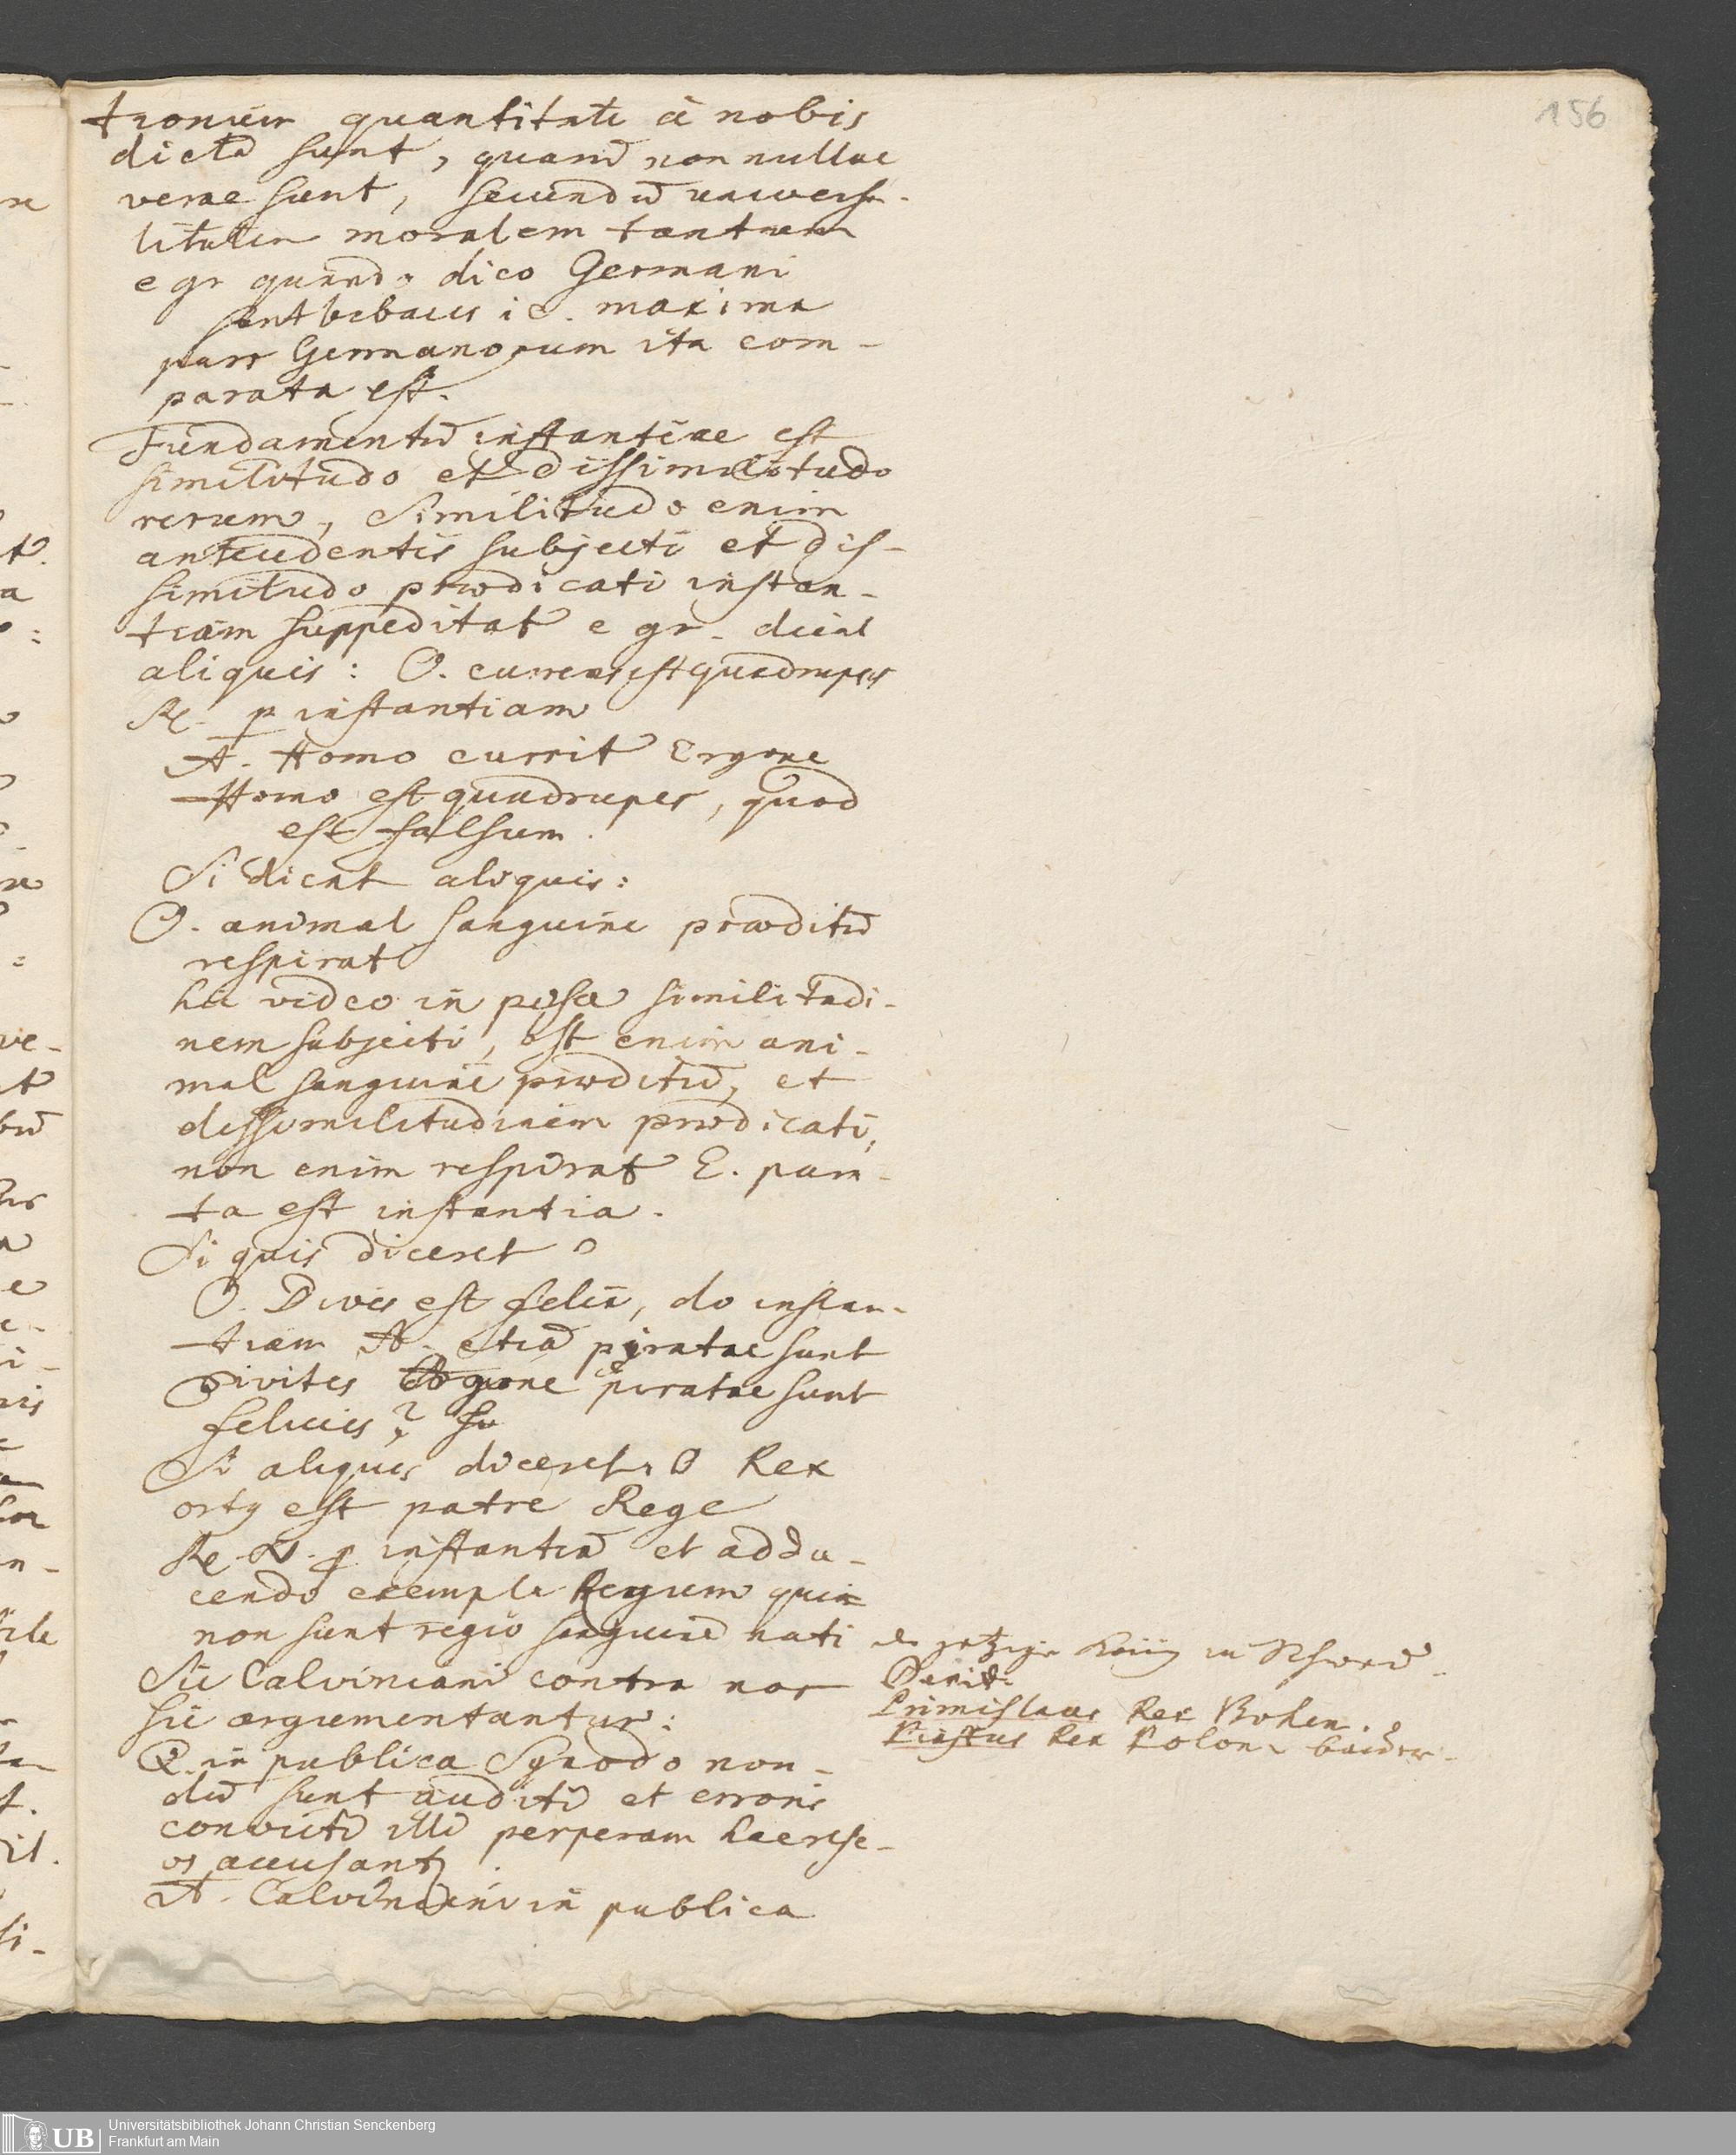 156
tionum quantitate à nobis
dictã sunt, quarũ non nullae
verae sunt, secundũ universa-
litatem moralem tantum
e gr quando dico Germani
sunt bibaces i.e. maxima
pars Germanorum ita com-
parata est.
Fundamentũ instantiae est
similitudo et dissimilitudo
rerum, Similitudo enim
antecedentis subjecti et dis-
similitudo praedicati instan-
tiam suppeditat e gr. dicat
aliquis: O. currens est quadrupes
Re. p instantiam
A. Homo currit Ergone
Homo est quadrupes, quod
est falsum.
Si dicat aliquis:
O. animal sanguine praeditũ
respirat
hic video in pisce similitudi-
nem subjecti, est enim ani-
mal sanguine praeditũ, et
dissimilitudinem praedicati,
non enim respirat E. para-
ta est instantia.
Si quis diceret
O. Dives est felix, do instan-
tiam A. etiã pyratae sunt
divites Ergone piratae sunt
felices?
Si aliquis diceret O Rex
ortq est patre Rege
Re. N. p instantiã et addu-
cendo exempla Regum qui
non sunt regio sanguine nati
Sic Calviniani contra nos
sic argumentantur:
Q. in publica Synodo non-
dũ sunt auditi et erroris
convicti illi perperam haerese-
os accusantr
A. Calviniani in publica
der jetzige König in Schwed.
David
Primislaus Rex Bohem.
Piastus Rex Polon.
UB
Universitätsbibliothek Johann Christian Senckenberg
Frankfurt am Main